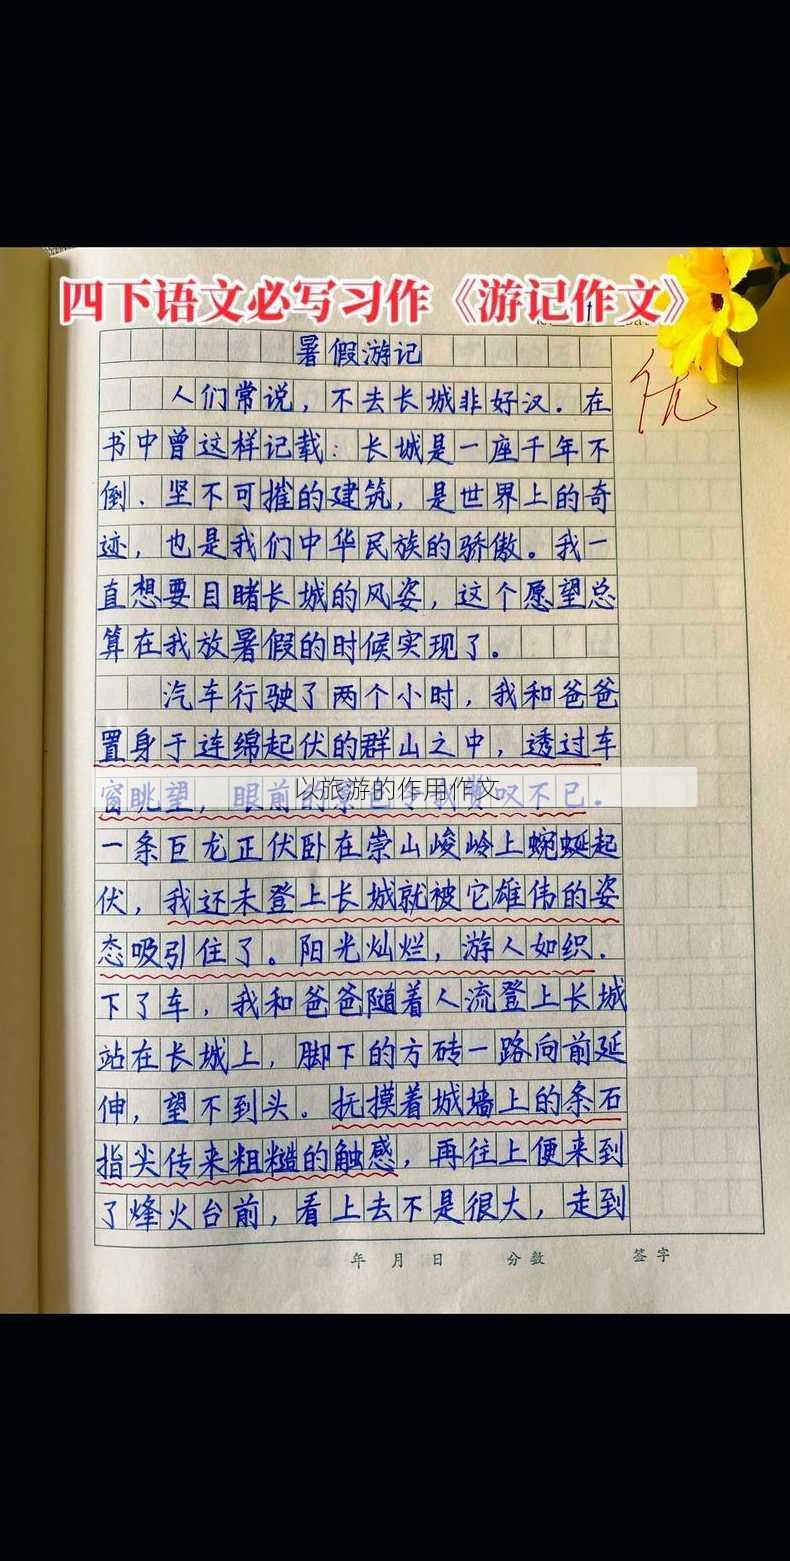 四下语文必写习作《游记作文》
暑假游记
优
人们常说，不去长城非好汉．在
书中曾这样记载：长城是一座千年不
倒、坚不可摧的建筑，是世界上的奇
迹，也是我们中华民族的骄傲。我一
直想要目睹长城的风姿，这个愿望总
算在我放暑假的时候实现了。
汽车行驶了两个小时，我和爸爸
置身于连绵起伏的群山之中，透过车
窗眺望，眼前的景色令我赞叹不已．
以旅游的作用作文
一条巨龙正伏卧在崇山峻岭上蜿蜒起
伏，我还未登上长城就被它雄伟的姿
态吸引住了。阳光灿烂，游人如织．
下了车，我和爸爸随着人流登上长城
站在长城上，脚下的方砖一路向前延
伸，望不到头。抚摸着城墙上的条石
指尖传来粗糙的触感，再往上便来到
了烽火台前，看上去不是很大，走到
年 月 日 分数 签字